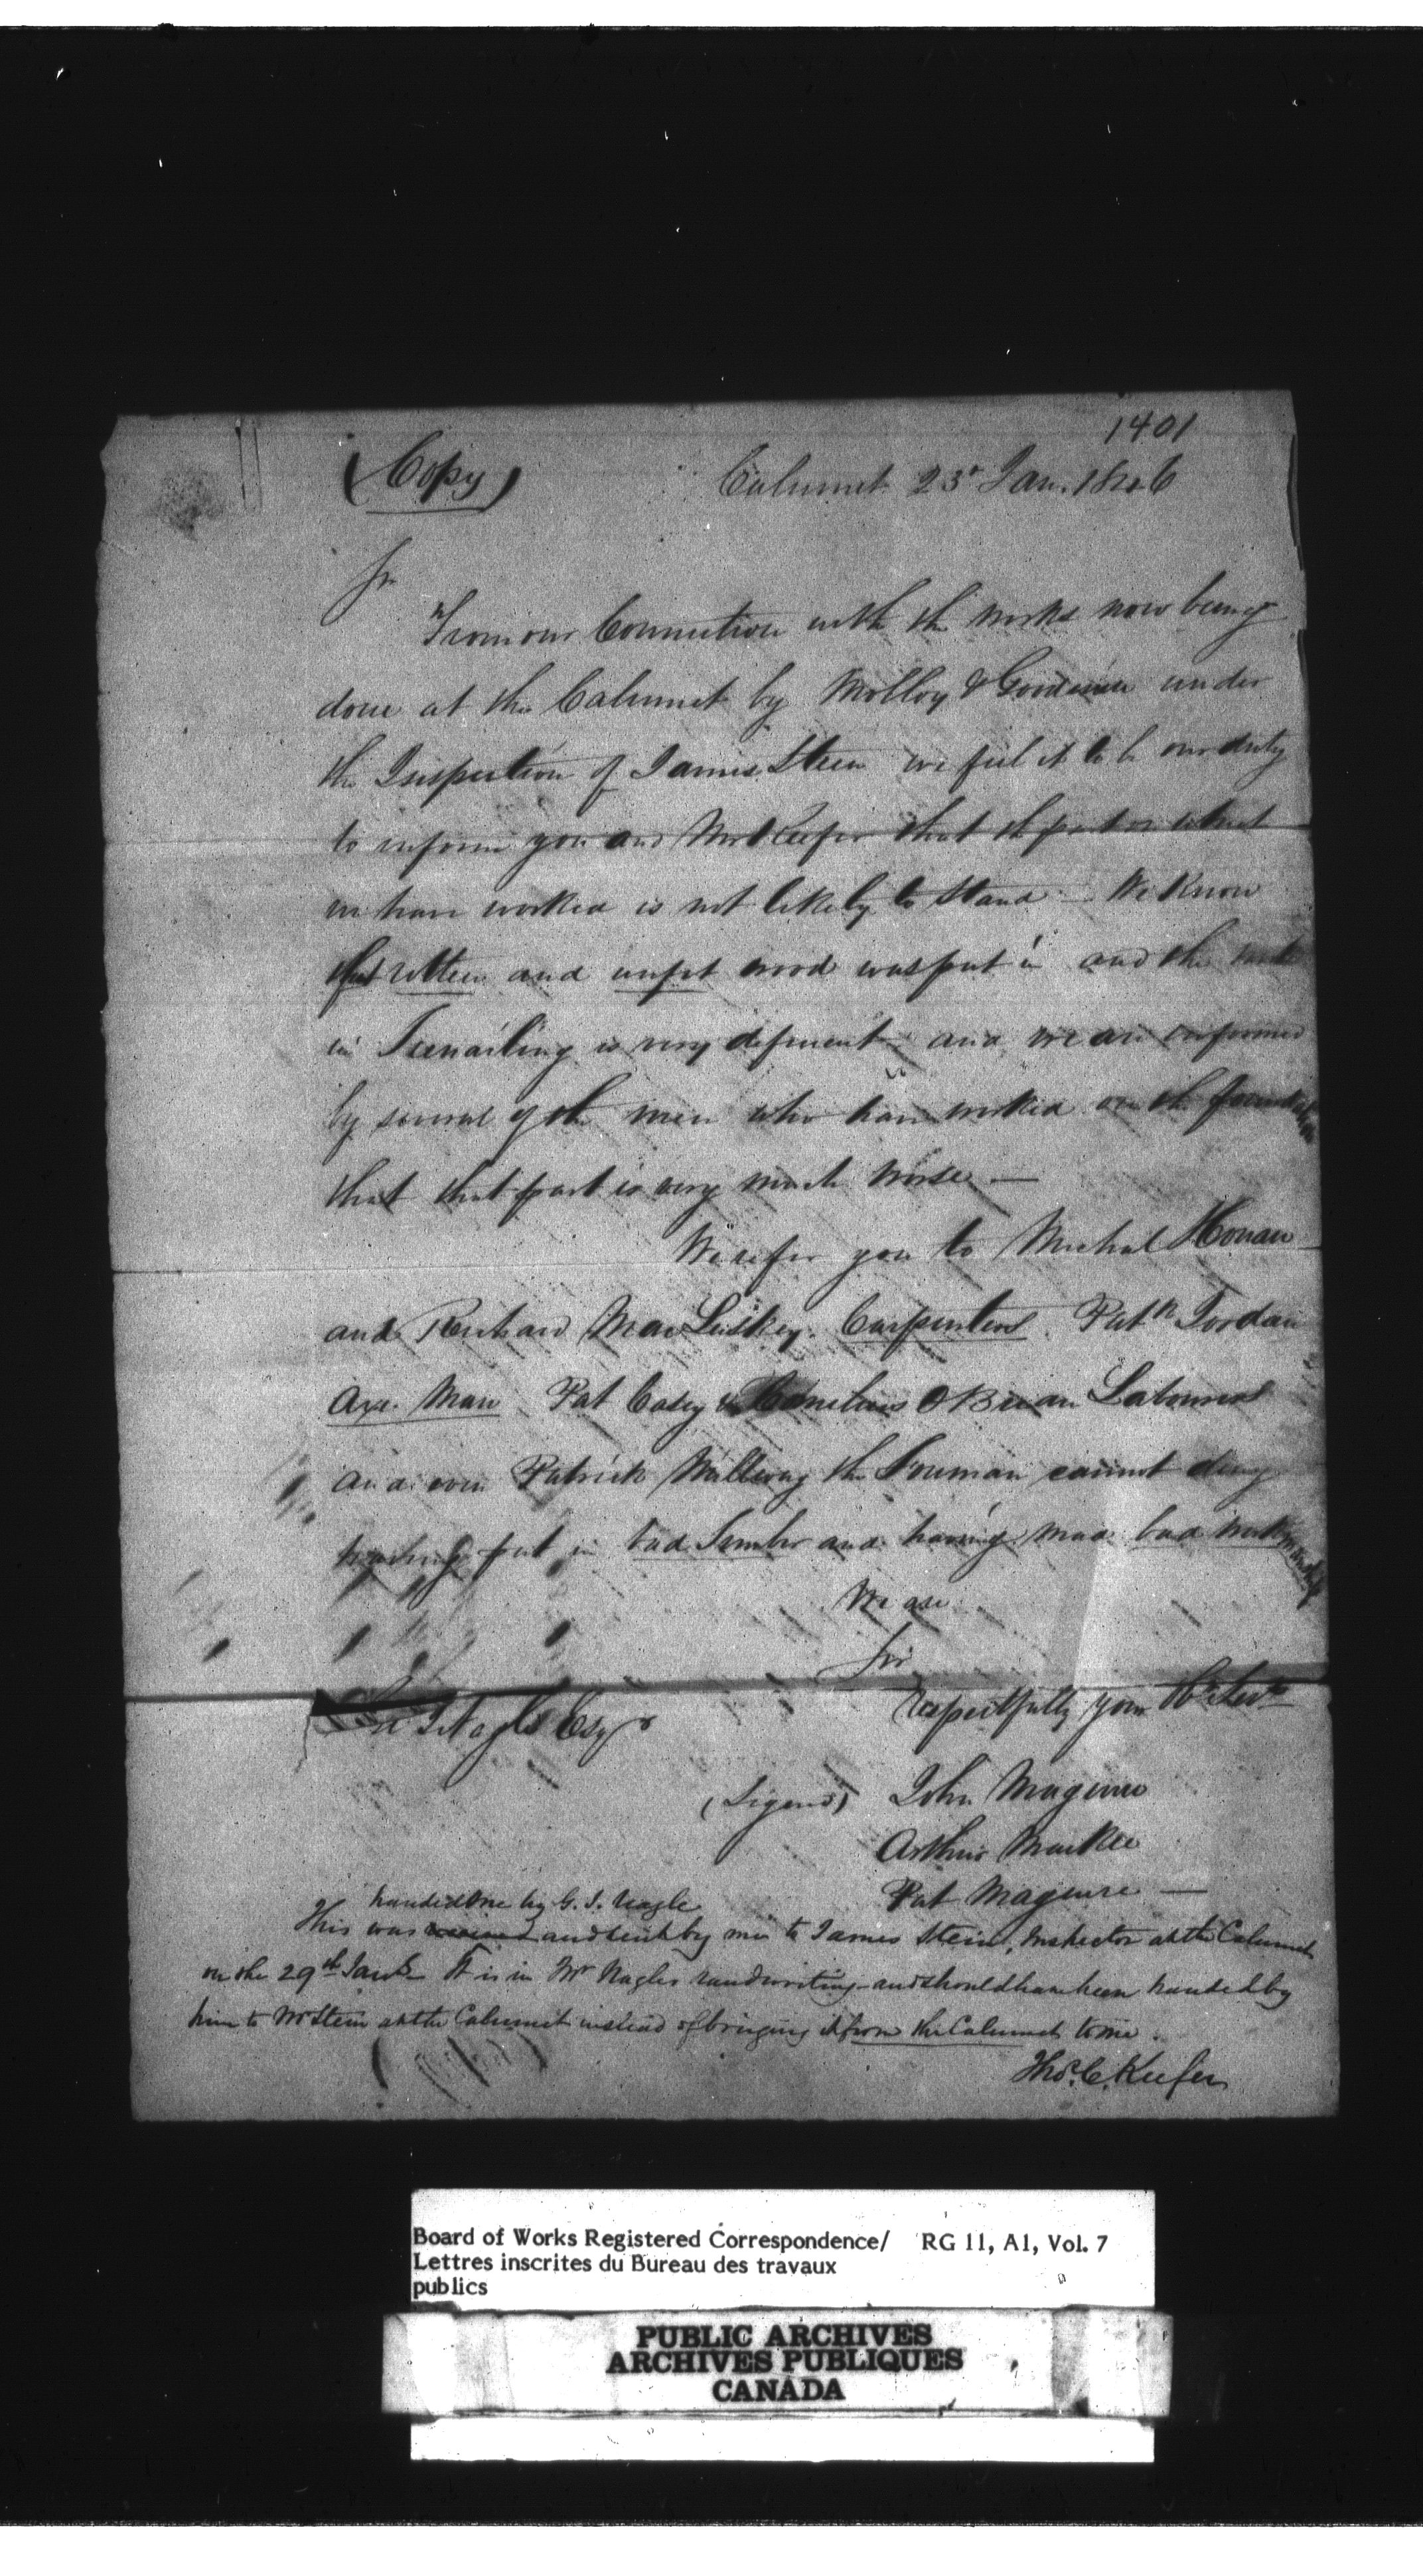 1401
(Copy) Calumet 23d Jan. 1846
Sir
From our Connection with the works now being
done at the Calumet by Molloy & under
the Inspection of James Stein we feel it to be our duty
to inform you and Mr Keefer that the part on which
we have worked is not likely to Stand — We Know
that rotten and unfit wood was put in and the work
in Treenailing is very deficient — and we are informed
by several of the men who have worked on the foundation
that that part is very much worse —
We refer you to Michal Honan
and Richard Carpenters Path Jordan
Axe Man Pat Casey & Cornelius OBrian Labourers
and even Patrick the Foreman cannot deny
having put in bad Timber and having made bad workmanship
We are
Sir
respectfully your Ob Servts
Nagle Esqr
(Signed) John Maguire
Arthur MacKee
Pat Maguire —
handed me by G. S. Nagle
This was and sent by me to James Stein, Inspector at the Calumet
on the 29th Jany It is in Mr Nagles handwriting and should have been handed by
him to Mr Stein at the Calumet instead of bringing it from the Calumet to me.
Thos. C. Keefer
Board of Works Registered Correspondence/ RG 11, A1, Vol. 7
Lettres inscrites du Bureau des travaux
publics
PUBLIC ARCHIVES
ARCHIVES PUBLIQUES
CANADA